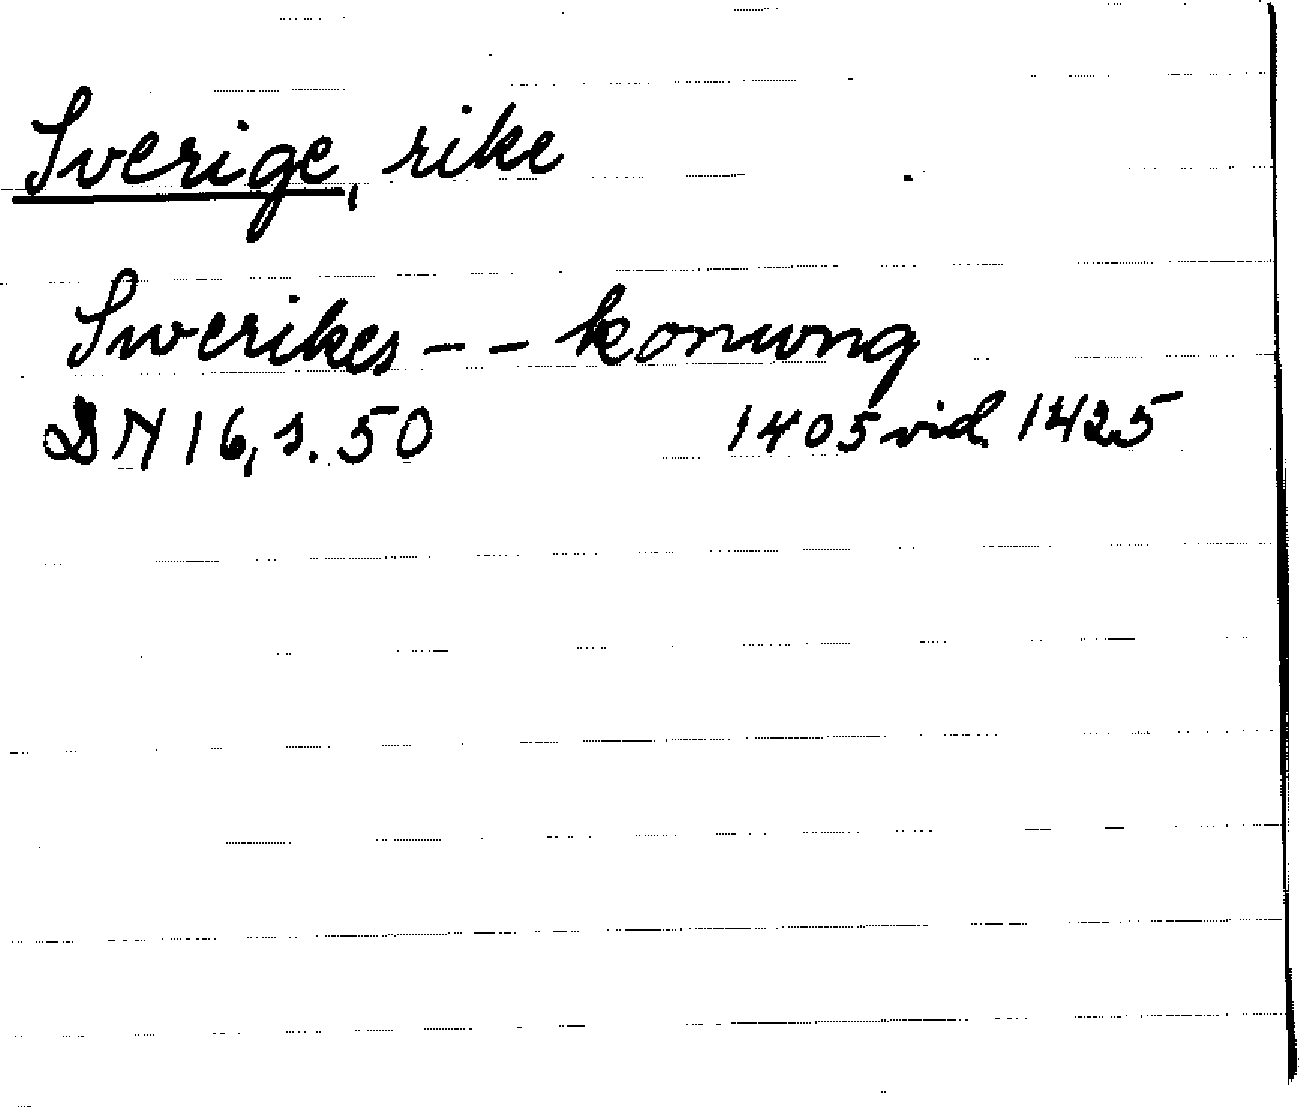 Sverige, rike
Swerikes -- konwng
DN 16, s. 50 1405 vid. 1425